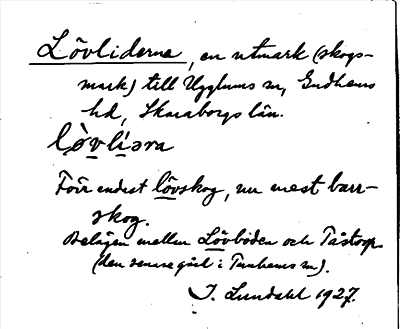 Lövliderna, en utmark (skogs-
mark) till Ugglums sn, Gudhems
hd, Skaraborgs län.
lo᷄vli̭əra
Förr endast lövskog, nu mest barr-
skog.
Belägen mellan Lövboden och Tåstorp
(den senare gård i Tunhems sn).
I. Lundahl 1927.